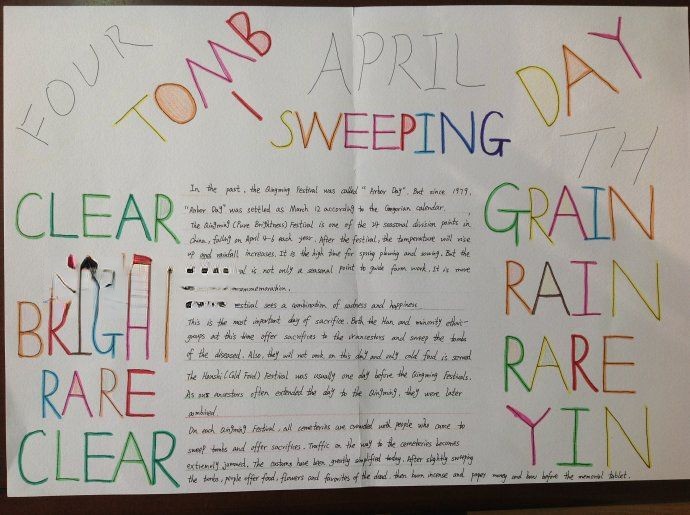 FOUR APRIL TH
TOMB SWEEPING DAY
CLEAR
BRIGHT
RARE
CLEAR
In the past, the Qingming Festival was called "Arbor Day". But since 1979,
"Arbor Day" was settled as March 12 according to the Gregorian calendar.
The Qingming (Pure Brightness) Festival is one of the 24 seasonal division points in
China, falling on April 4-6 each year. After the festival, the temperature will rise
up and rainfall increases. It is the high time for spring plowing and sowing. But the
al is not only a seasonal point to guide farm work. It is more
commemoration.
estival sees a combination of sadness and happiness
This is the most important day of sacrifice. Both the Han and minority ethnic
groups at this time offer sacrifices to the ancestors and sweep the tombs
of the diseased. Also, they will not cook on this day and only cold food is served
The Hanshi (Cold Food) Festival was usually one day before the Qingming Festivals.
As our ancestors often extended the day to the Qingming, they were later
combined.
On each Qingming Festival, all cemeteries are crowded with people who came to
sweep tombs and offer sacrifices. Traffic on the way to the cemeteries becomes
extremely jammed. The customs have been greatly simplified today. After slightly sweeping
the tombs, people offer food, flowers and favorites of the dead, then burn incense and paper money and bow before the memorial tablet.
GRAIN
RAIN
RARE
YIN